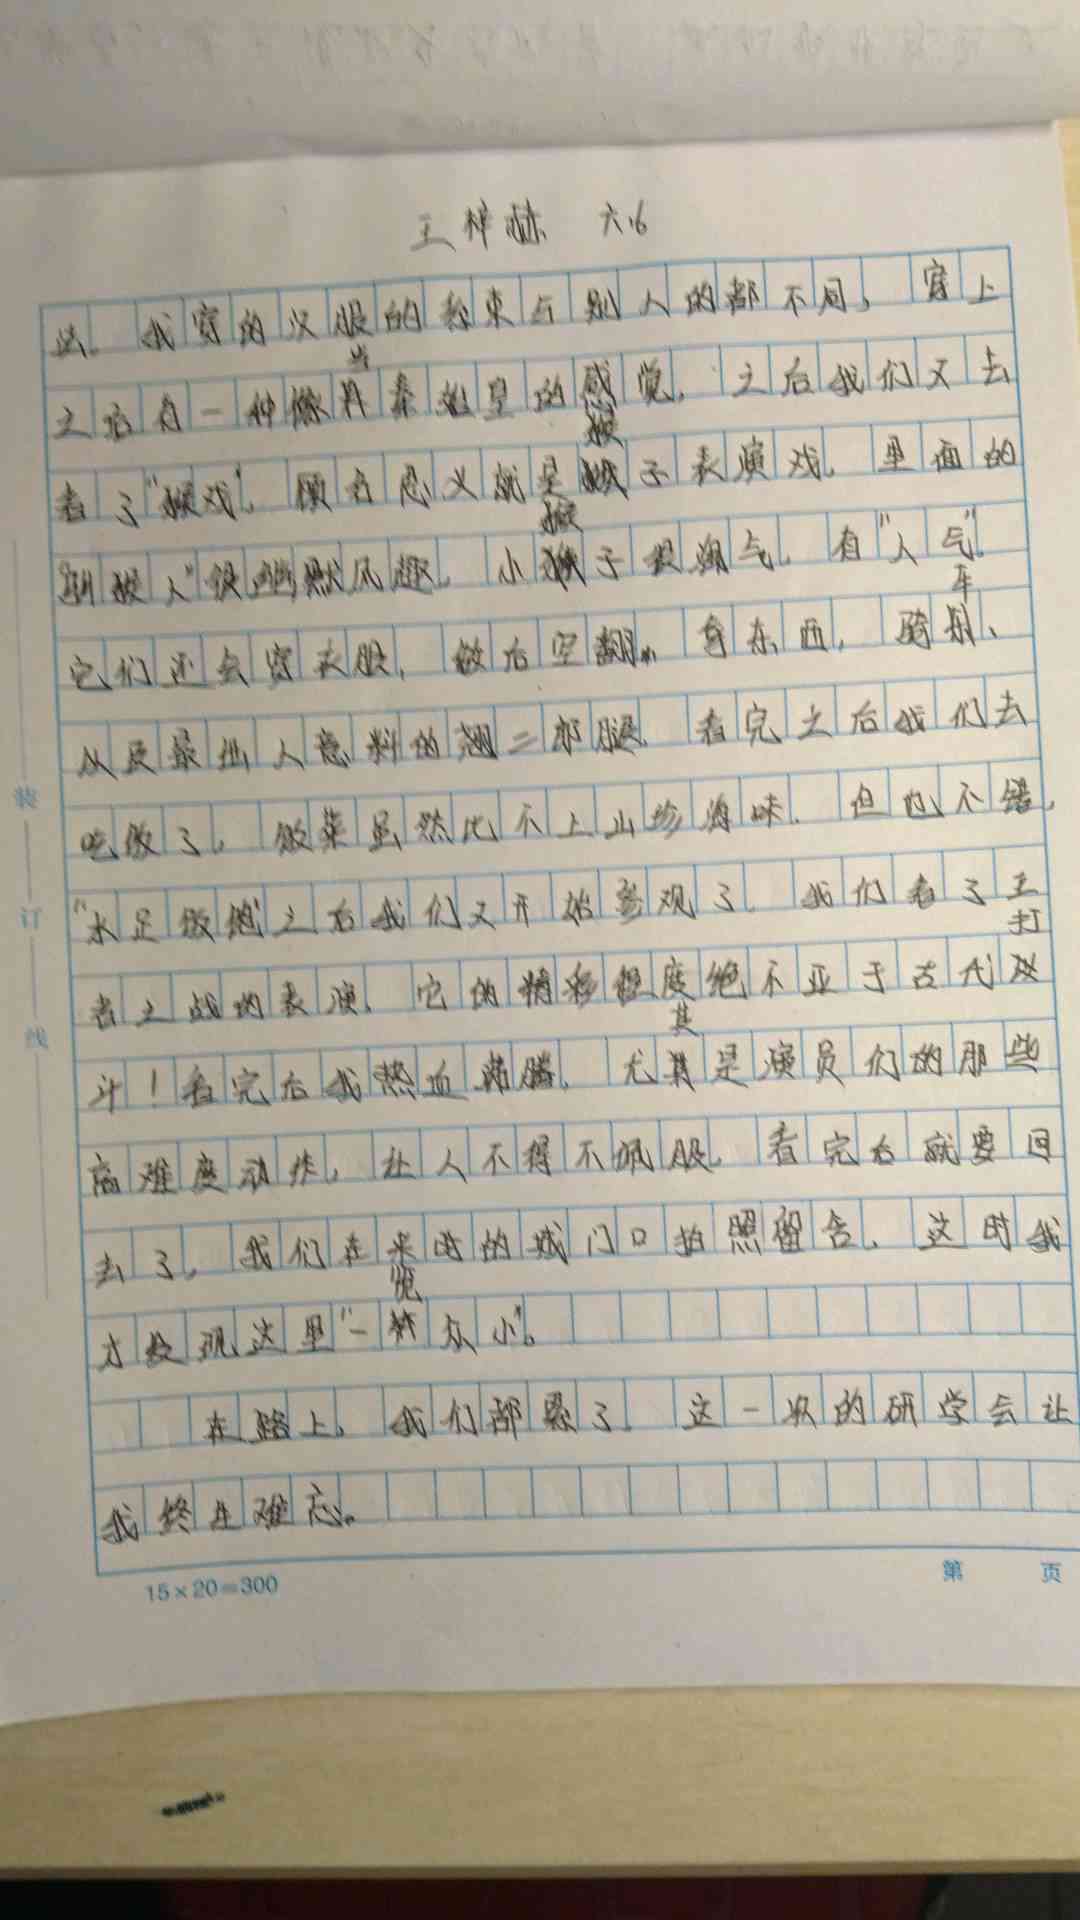 王梓赫 六.6
法。我穿的汉服的装束与别人的都不同，穿上
之后有一种像当秦始皇的感觉。之后我们又去
看了“猴戏”，顾名思义就是猴子表演戏。里面的
“驯猴人”很幽默风趣。小猴子很淘气，有“人气”。
它们还会穿衣服，做后空翻、拿东西，骑车、
以及最出人意料的翘二郎腿。看完之后我们去
吃饭了，饭菜虽然比不上山珍海味，但也不错，
“水足饭饱”之后我们又开始参观了。我们看了王
者之战的表演，它的精彩程度绝不亚于古代打
斗！看完后我热血沸腾，尤其是演员们的那些
高难度动作，让人不得不佩服。看完后就要回
去了，我们在来时的城门口拍照留念，这时我
才发现这里“一览众小”。
在路上，我们都累了，这一次的研学会让
我终生难忘。
装 订 线
15×20=300
第 页